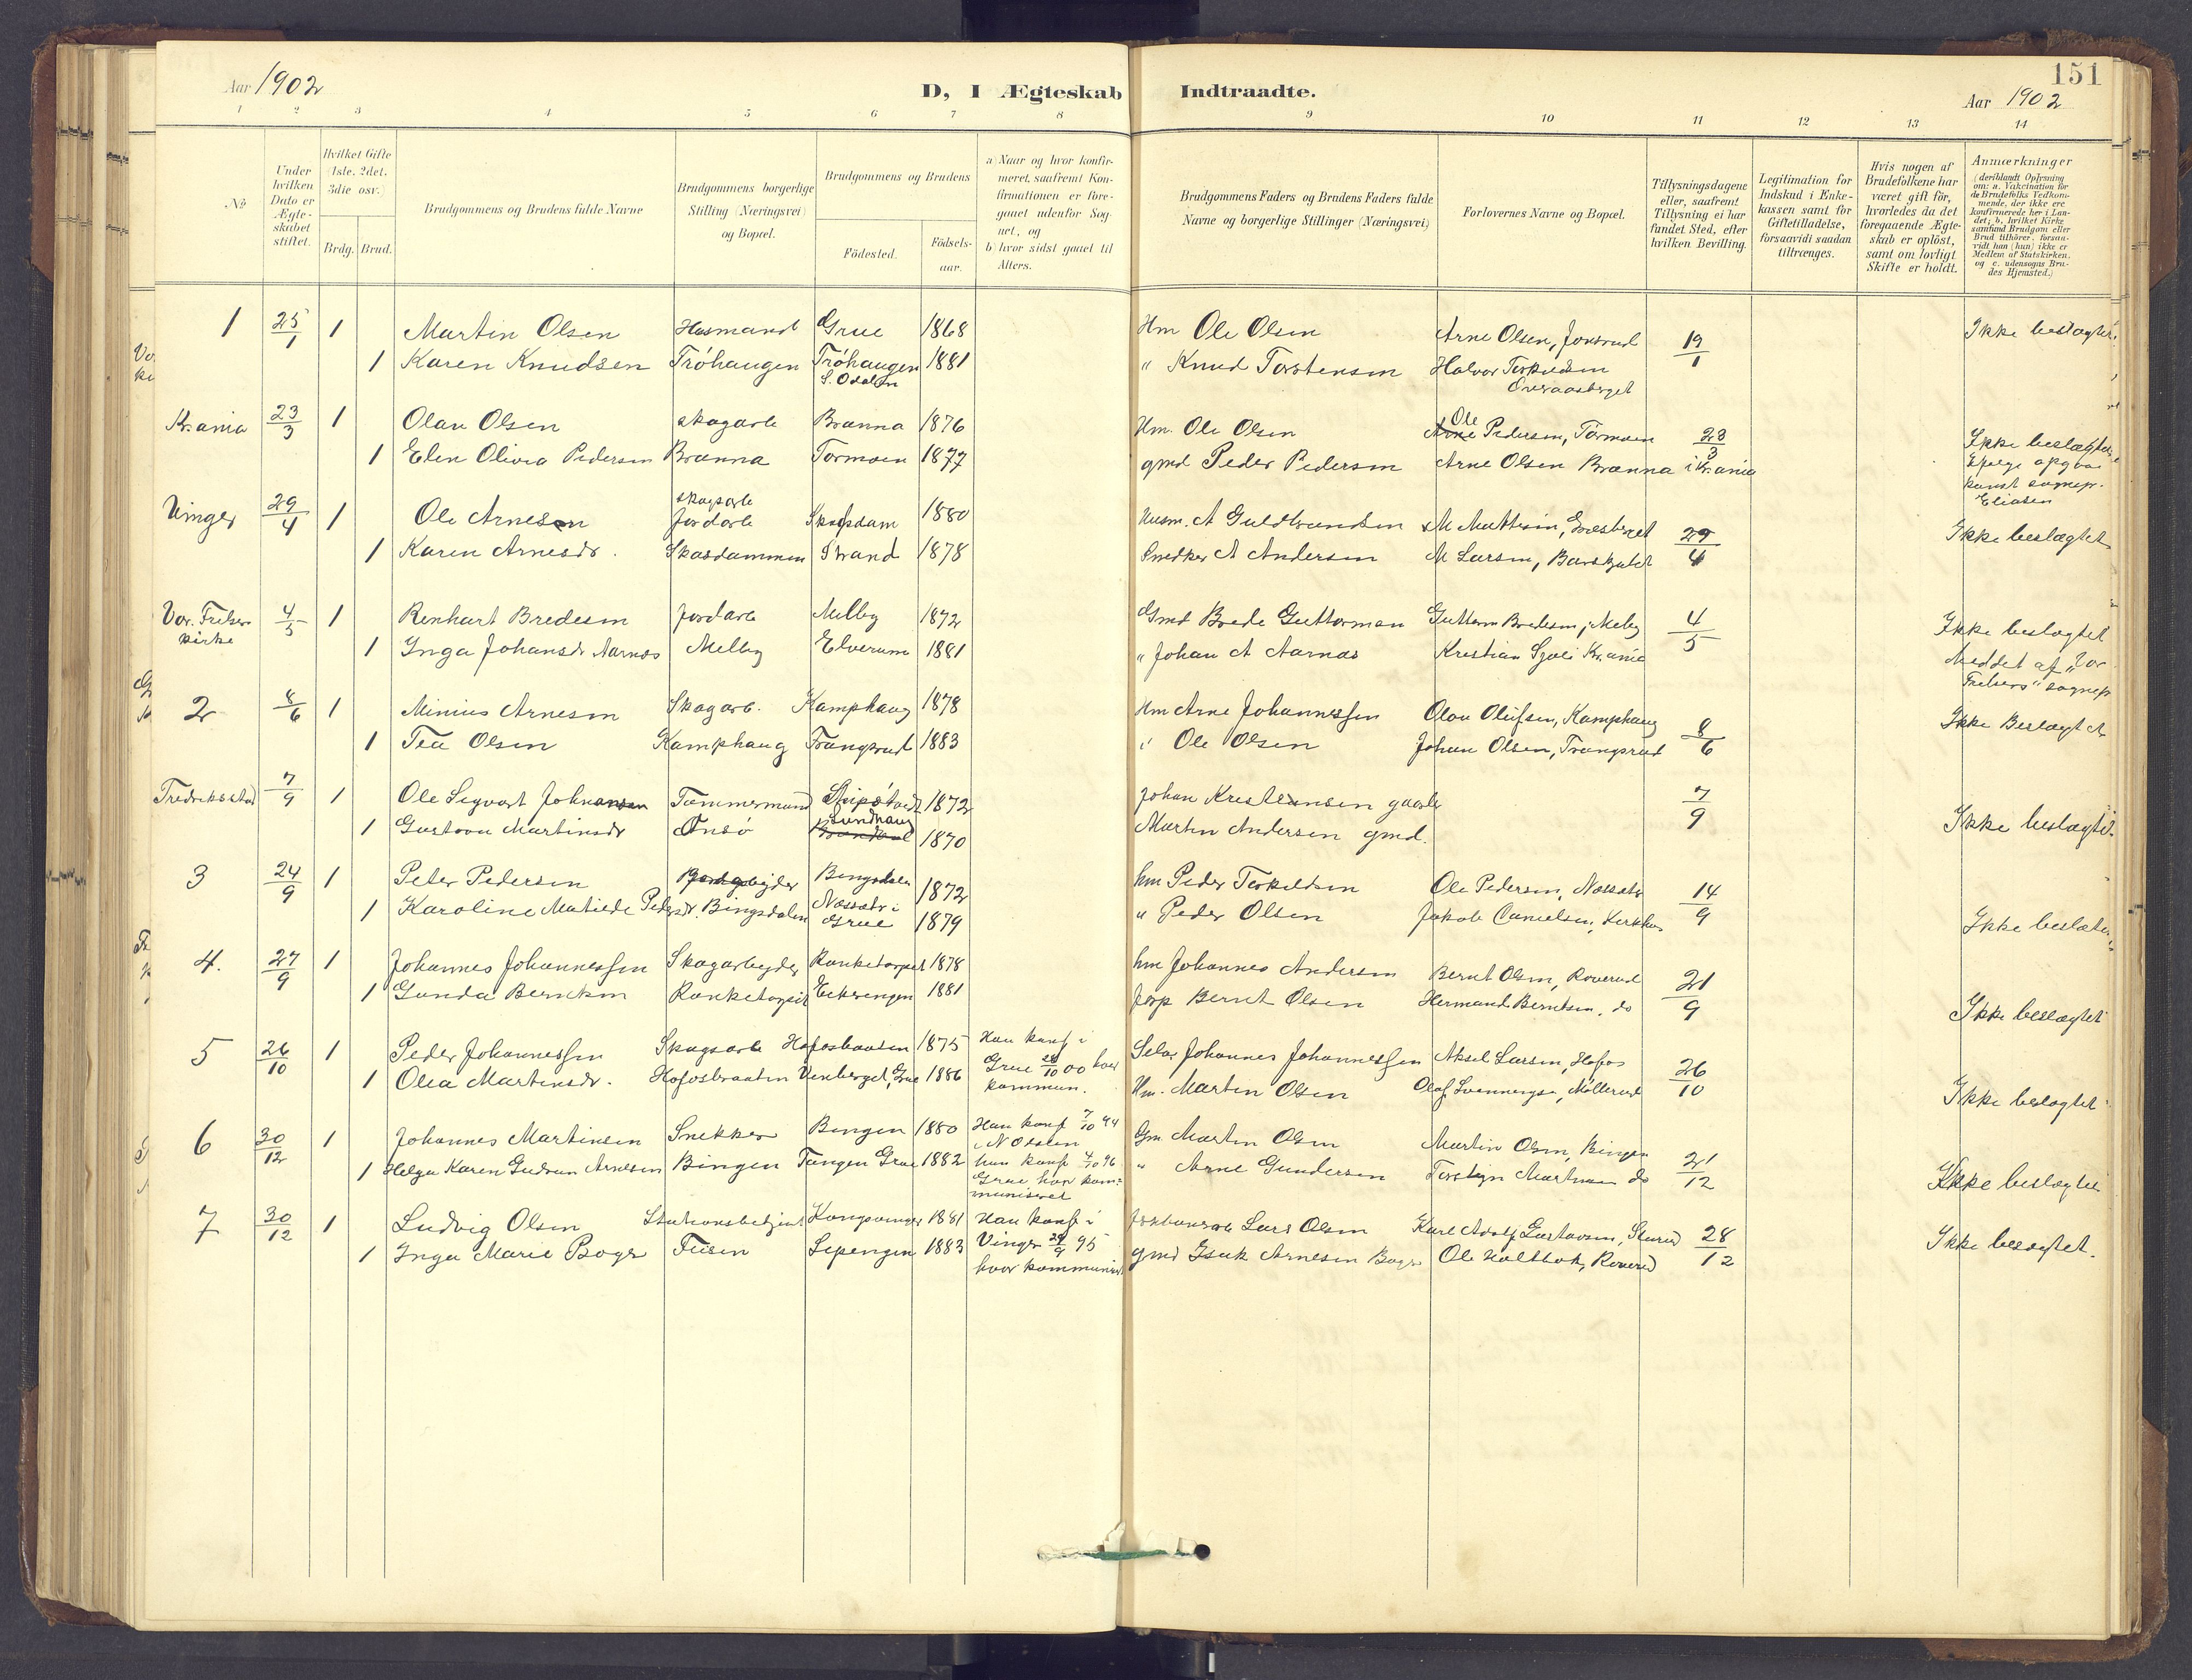 151
Aar 1902
D, I Ægteskab Indtraadte.
Aar 1902
1 2 3 4 5 6 7 8 9 10 11 12 13 14
No
Under hvilken Dato er Ægteskabet stiftet.
Hvilket Gifte (1ste, 2det, 3die osv.)
Brdg. Brud.
Brudgommens og Brudens fulde Navne
Brudgommens borgerlige Stilling (Næringsvei) og Bopæl.
Brudgommens og Brudens
Födested.
Födsels-aar.
a) Naar og hvor konfirmeret, saafremt Konfirmationen er foregaaet udenfor Sognet, og
b) hvor sidst gaaet til Alters.
Brudgommens Faders og Brudens Faders fulde Navne og borgerlige Stillinger (Næringsvei)
Forlovernes Navne og Bopæl.
Tillysningsdagene eller, saafremt Tillysning ei har fundet Sted, efter hvilken Bevilling.
Legitimation for Indskud i Enkekassen samt for Giftetilladelse, forsaavidt saadan tiltrænges.
Hvis nogen af Brudefolkene har været gift för, hvorledes da det foregaaende Ægteskab er oplöst, samt om lovligt Skifte er holdt.
Anmærkninger (deriblandt Oplysning om: a. Vakcination for de Brudefolks Vedkommende, der ikke ere konfirmerede her i Landet; b. hvilket Kirkesamfund Brudgom eller Brud tilhörer, forsaavidt han (hun) ikke er Medlem af Statskirken, og c. udensogns Brudes Hjemsted.)
1 25/1 1 Martin Olsen Husmand Grue 1868 Hm Ole Olsen Arne Olsen, 19/1 Ikke beslægtet
1 Karen Knudsen Tröhaugen Tröhaugen S. Odalen 1881 " Knud Torstensen Halvor Terkildsen Overaasberget
Kr.ania 23/3 1 Olau Olsen skogarb Brænna 1876 Hm. Ole Olsen Ole Pedersen, Tormoen 23/3 Ikke beslægtede
1 Elen Olivia Pedersen Brænna Tormoen 1877 gmd Peder Pedersen Arne Olsen Brænna i Kr.ania sognepr. Eliasen
Vinger 29/4 1 Ole Arnesen skogsarb Jordarb 1880 Husm. A Guldbrandsen M Mathesen, 29/4 Ikke beslægtet
1 Karen Arnesdr. Skasdammen Strand 1878 Snedker A Andersen M Larsen,
Vor. Frelser kirke 4/5 1 Renhart Bredesen Jordarb Melby 1872 Gmd Brede Guttormsen Guttorm Bredesen, Melby 4/5 Ikke beslægtet
1 Inga Johansdr Aarnæs Melby Elverum 1881 " Johan A Aarnæs Kristian Kr.ania Meddet af "Vor Frelsers" sognepr
2 8/6 1 Minius Arnesen Skogarb. Kamphaug 1878 Hm Arne Johannessen Olou Olufsen, Kamphaug 8/6 Ikke Beslægtet
1 Tea Olsen Kamphaug Trangsrud 1883 " Ole Olsen Johan Olsen, Trangsrud
Fredriksstad 7/9 1 Ole Sigvart Johansen Tømmermand 1872 Johan Kristiansen gaarb 7/9
1 Gustava Martinsdr Onsö Sundhaug 1870 Martin Andersen gmd. Ikke beslægtet
3 24/9 1 Peter Pedersen Bingsdalen 1872 hm Peder Terkildsen Ole Pedersen, Næssætr 14/9
1 Karoline Matilde Pedersdr. Bingsdalen Næssætr i Grue 1879 " Peder Olsen Jakob Danielsen, Ikke beslæktet
4. 27/9 1 Johannes Johannessen Skogarbeyder Ranketorpet 1878 hm Johannes Andersen Bernt Olsen, Roverud 21/9
1 Gunda Berntsen Ranketorpet 1881 Bernt Olsen Hermand Berntsen, do Ikke beslægtet
5 26/10 1 Peder Johannessen Skogsarb Hofosbraaten 1875 Han konf i Grue 28/10 00 hvor kommun. Selv. Johannes Johannessen Aksel Larsen, Hofos 26/10
1 Olea Martinsdr. Hofosbraaten Venberget, Grue 1886 Hm. Martin Olsen Olaf Möllerud Ikke beslægtet
6 30/12 1 Johannes Martinsen Snekker Bingen 1880 Han konf 7/10 94 i N Odalen Gm Martin Olsen Martin Olsen, Bingen 21/12
1 Helga Karen Gudrun Arnesen Bingen Tangen Grue 1882 hun konf 4/10 96 Grue hvor kommuniseret " Arne Gundersen Torstejn Martinsen do Ikke beslægtet
7 30/12 1 Ludvig Olsen Stationsbetjent Kongsvinger 1881 Han konf i Vinger 29/9 95 hvor kommunisert Lars Olsen Karl Adolf Gustavsen, Skurud 28/12
1 Inga Marie Boger Feisen Sepengen 1883 gmd Isak Arnesen Boger Ole Holtbak, Roverud Ikke beslægtet.